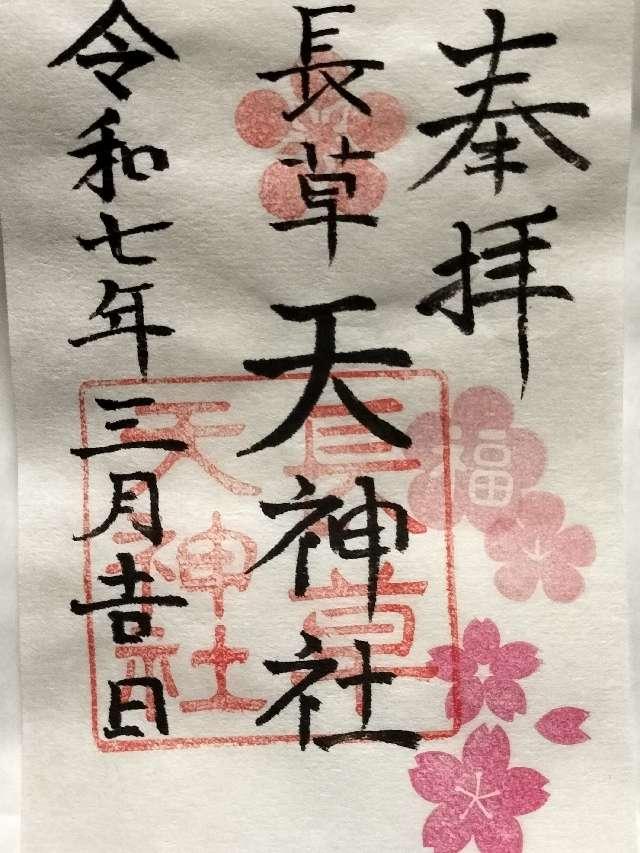 奉拝
長草天神社
令和七年三月吉日
長草
天神社
福